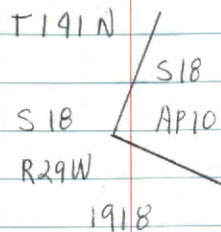 T141N
S18
S18
AP10
R29W
1918